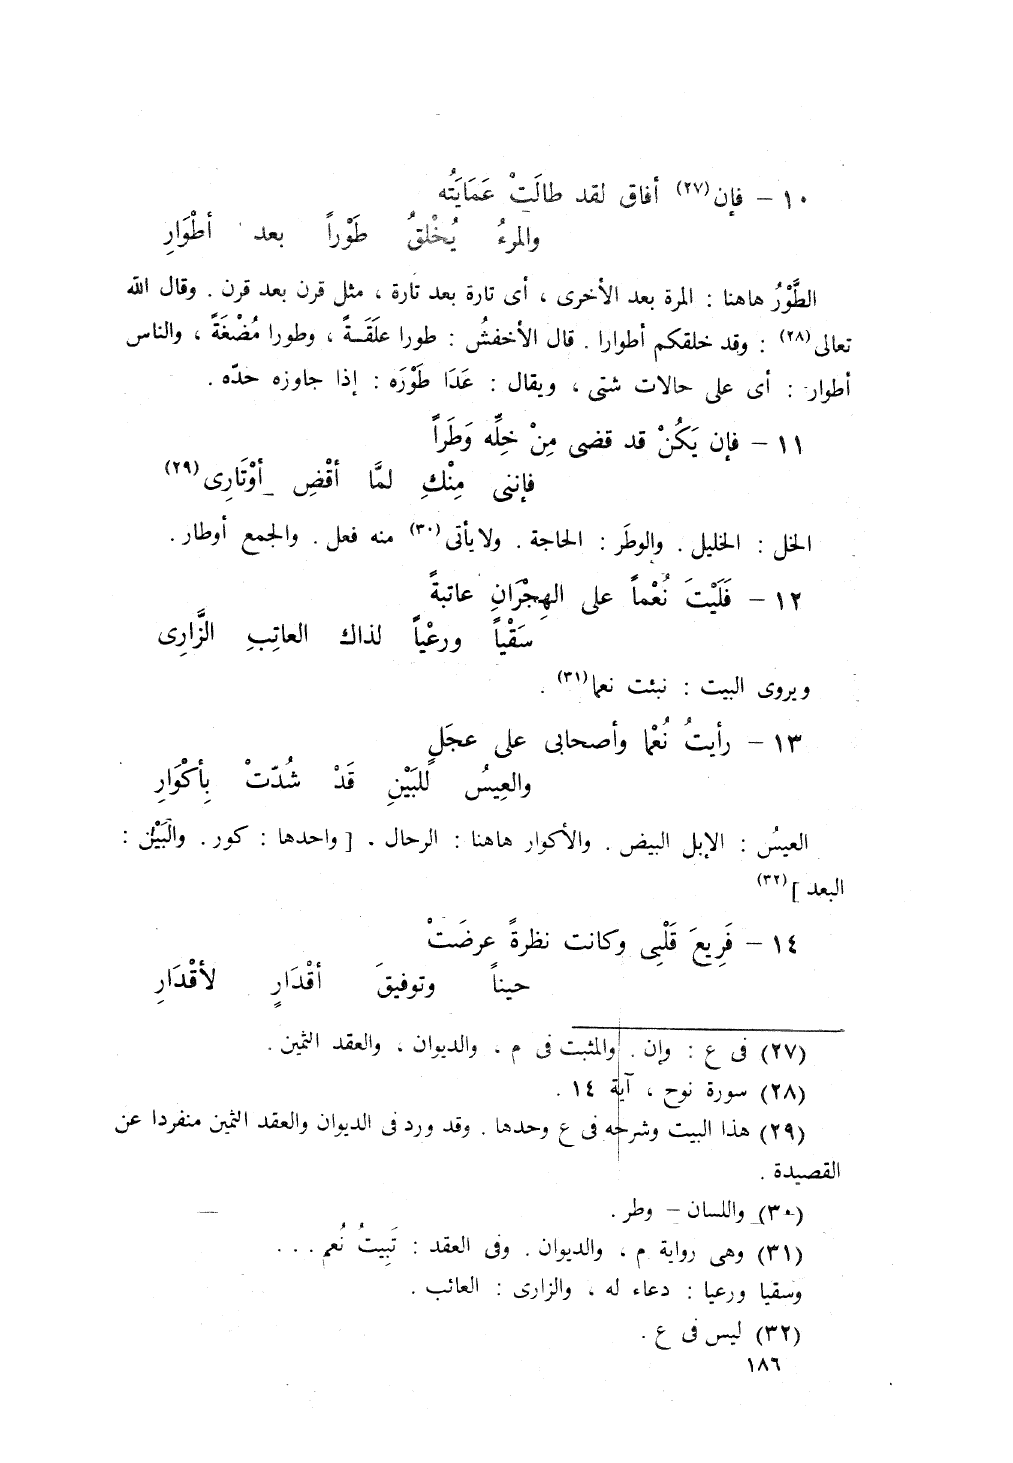 ١٠ – فإن(٢٧) أفاق لقد طالَتْ عَمَايَتُه
والمرءُ يُخْلقُ طَوْراً بعد أطْوَارِ
الطَّوْرُ هاهنا : المرة بعد الأخرى ، أى تارة بعد تارة ، مثل قرن بعد قرن . وقال الله
تعالى(٢٨) : وقد خلقكم أطوارا . قال الأخفشُ : طورا علَقَــةً ، وطورا مُضْغَةً ، والناس
أطوار : أى على حالات شتى ، ويقال : عَدَا طَوْرَه : إذا جاوزه حدّه .
١١ – فإن يَكُنْ قد قضى مِنْ خلِّه وَطَراً
فإننى مِنْكِ لمَّا أقْضِ أوْتَارِى(٢٩)
الخل : الخليل . والوطَر : الحاجة . ولا يأتى(٣٠) منه فعل . والجمع أوطار .
١٢ – فَلَيْتَ نُعْماً على الهِجْرَانِ عاتبةً
سَقْياً ورعْياً لذاك العاتِبِ الزَّارِى
ويروى البيت : نبئت نعما(٣١) .
١٣ – رأيتُ نُعْما وأصحابى على عجَلٍ
والعِيسُ للبَيْنِ قَدْ شُدّتْ بِأكْوَارِ
العيسُ : الإبل البيض . والأكوار هاهنا : الرحال . [ واحدها : كور . والبَيْن :
البعد ](٣٢)
١٤ – فَرِيعَ قَلْبِى وكانت نظرةً عرضَتْ
حيناً وتوفيقَ أقْدَارٍ لأقْدَارِ
(٢٧) فى ع : وإن . والمثبت فى م ، والديوان ، والعقد الثمين .
(٢٨) سورة نوح ، آية ١٤ .
(٢٩) هذا البيت وشرحه فى ع وحدها . وقد ورد فى الديوان والعقد الثمين منفردا عن
القصيدة .
(٣٠) واللسان – وطر .
(٣١) وهى رواية م ، والديوان . وفى العقد : تَبِيتُ نُعم . . .
وسقيا ورعيا : دعاء له ، والزارى : العائب .
(٣٢) ليس فى ع .
١٨٦